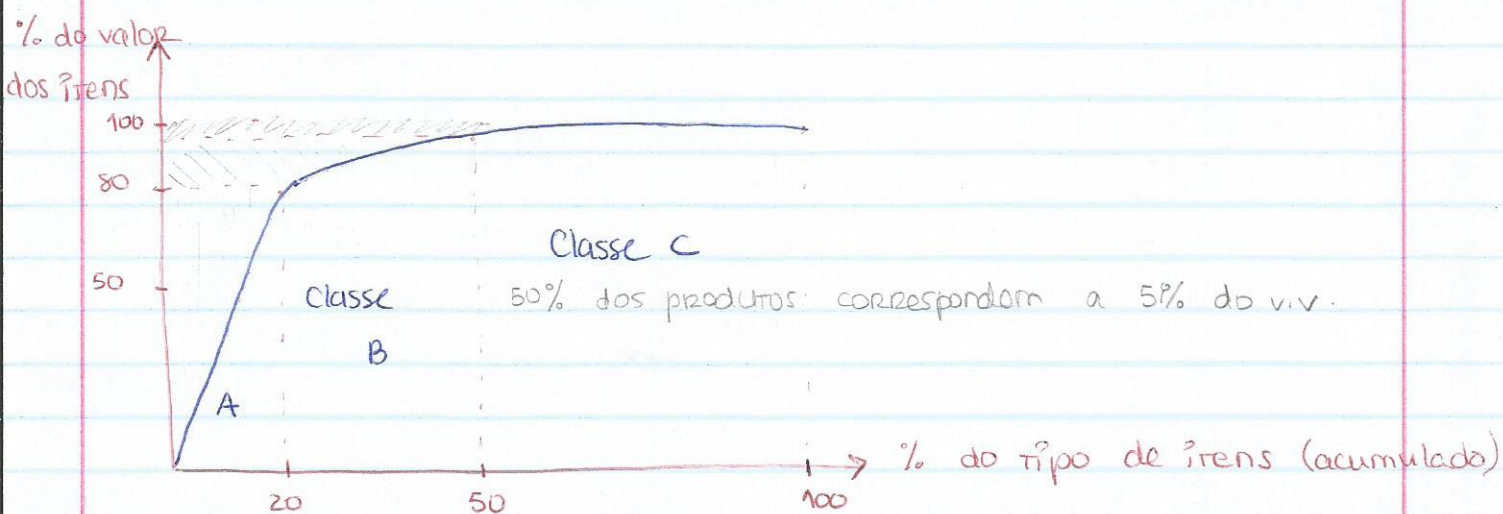 % do valor
dos itens
100
80
50
Classe C
Classe
B
50% dos produtos correspondem a 5% do v.v.
A
% do tipo de itens (acumulado)
20
50
100